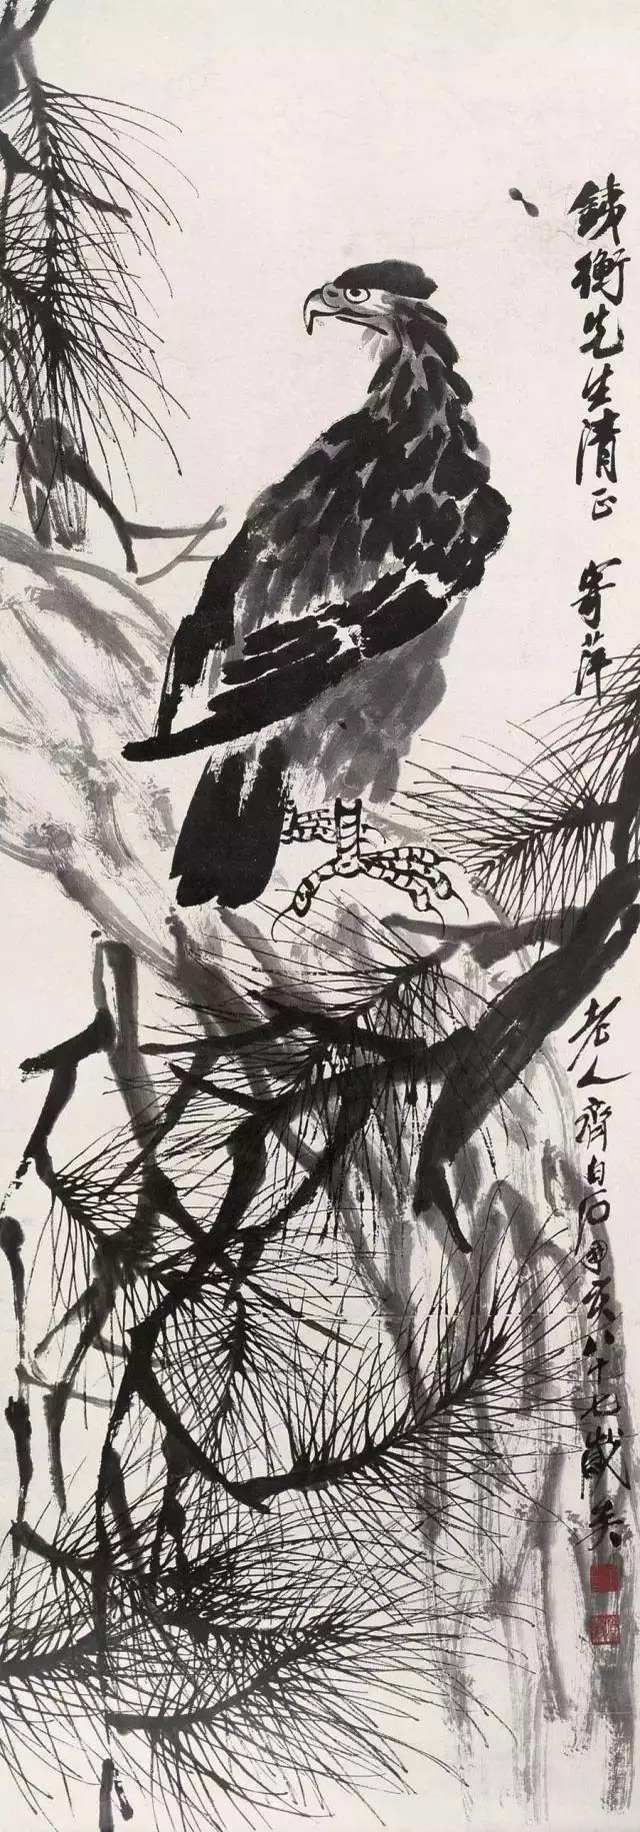 鐵衡先生清正 寄萍
老人齊白石丁亥八十七歲矣